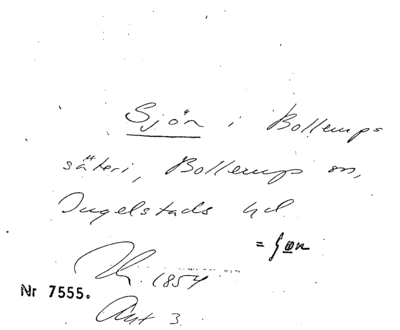 Sjön i Bollerups
säteri, Bollerups sn,
Ingelstads hd
Nr 7555.
1854
Ant 3.